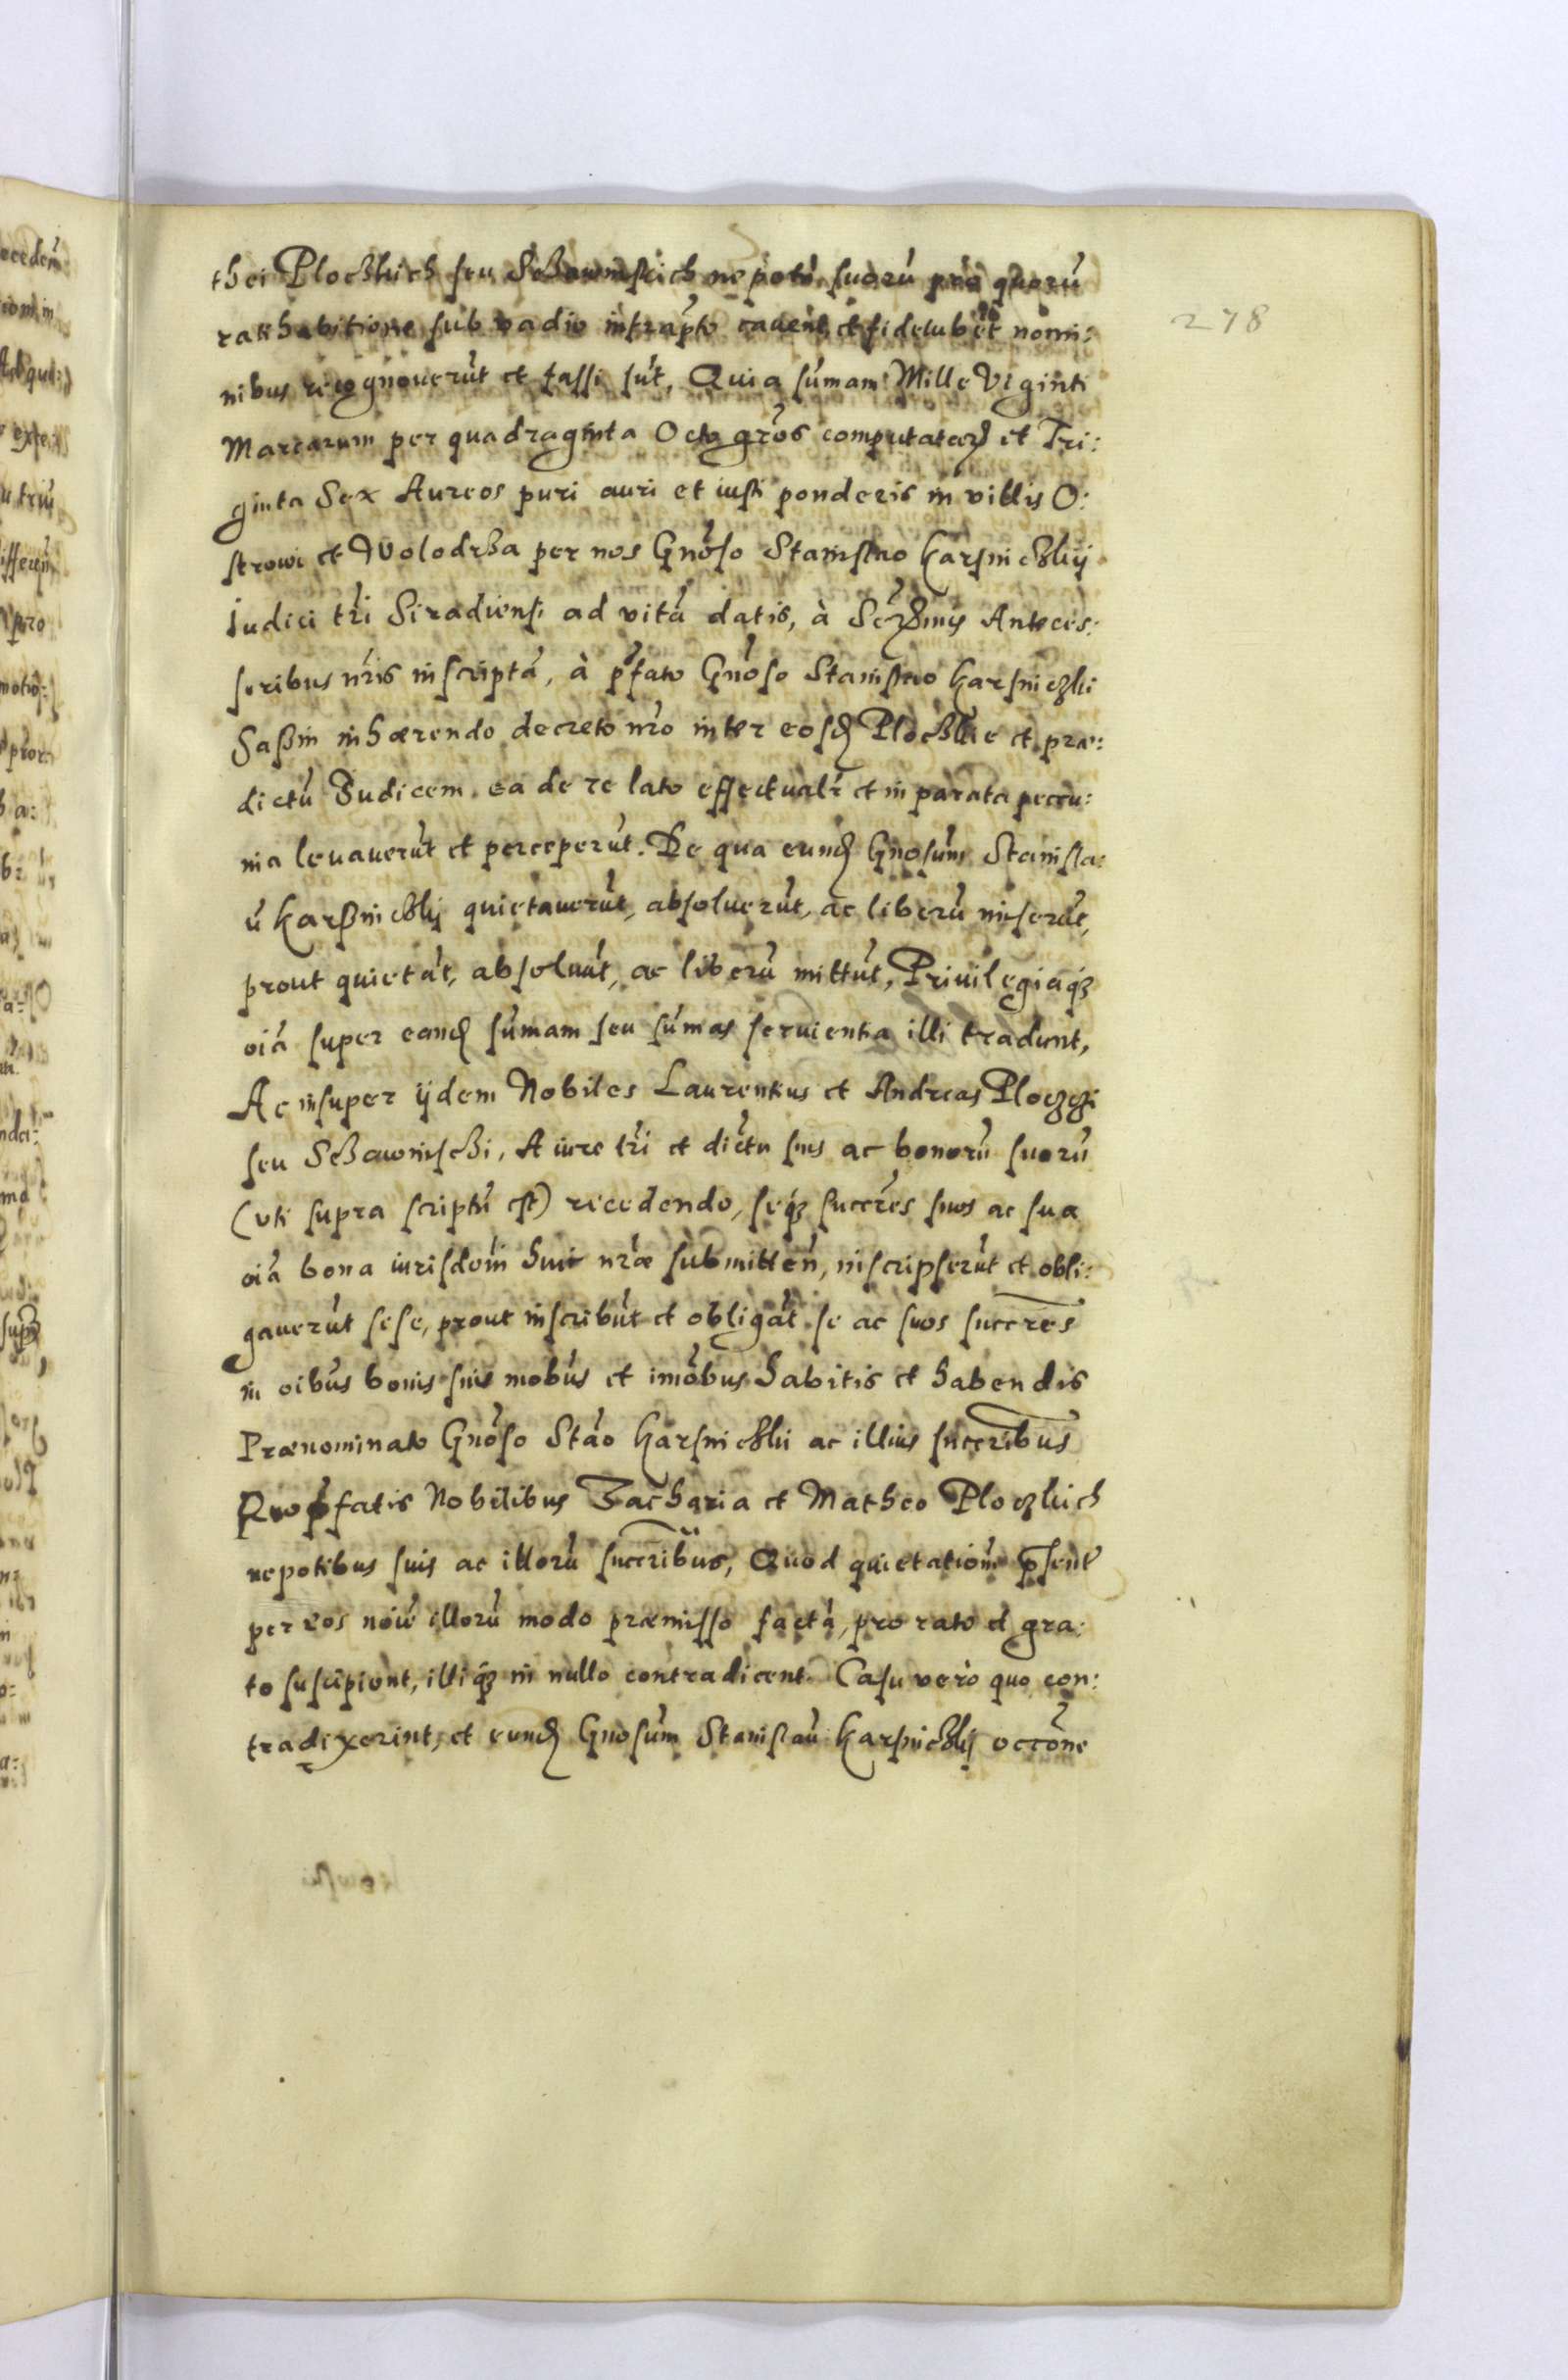 278
thei Ploczkich seu Sczawinskich nepotũ suorũ pro quorũ
ratihabitione sub vadio infrapto cavent et fideiubẽt nomi:
nibus recognoverũt et fassi sũt, Quia sũmam Mille Viginti
Marcarum per quadraginta Octo grõs computatarũ et Tri:
ginta Sex Aureos puri auri et iusti ponderis in villis O:
strowi et Wolodrza per nos Gnõso Stanislao Karsniczkij
Iudici tri Siradiensi ad vitã datis, à Serẽnis Anteces:
soribus nr̃is inscriptã, à p̃fato Gnõso Stanislao Karsniczki
inhærendo decreto nr̃o inter eosd Ploczkie et præ:
dictũ Iudicem ea de re lato effectualr̃ et in parata pecu:
nia levaverũt et perceperũt. De qua eund Gnosũm Stanisla:
ũ Karsniczkij quietaverũt, absolverũt, ac liberũ miserũt,
prout quietãt, absolvũt, ac liberũ mittũt, Privilegiaq3
oiã super eand sũmam seu sũmas servientia illi tradunt,
Ac insuper ijdem Nobiles Laurentius et Andreas Ploczki
seu Sczawinscki, A iure tri et dictu suis ac bonorũ suorũ
(uti supra scriptũ est) recedendo, seq3 succr̃es suos ac sua
oiã bona iurisdoñi huic nr̃æ submitteñ, inscripserũt et obli:
gaverũt sese, prout inscribũt et obligãt se ac suos succr̃es
in oibũs bonis suis mobũs et imõbus habitis et habendis
Prænominato Gnõso Stão Karsniczki ac illius succribũs
Pro p̃fatis Nobilibus Zacharia et Matheo Ploczkich
nepotibus suis ac illorũ succribũs, Quod quietationẽ p̃sent̃
per eos noĩe illorũ modo præmisso factã, pro rato et gra:
to suscipient, illiq3 in nullo contradicent. Casu verò quo con:
tradixerint, et eund Gnosũm Stanislaũ Karsniczkij occõne